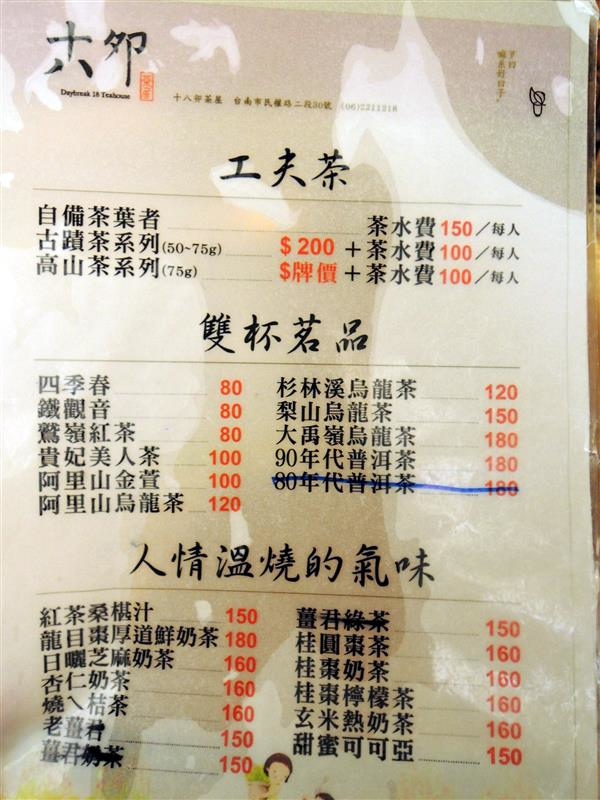 十八卯
Daybreak 18 Teahouse
十八卯茶屋 台南市民權路二段30號 (06)2211218
工夫茶
自備茶葉者 茶水費150／每人
古蹟茶系列(50~75g) $200＋茶水費100／每人
高山茶系列(75g) $牌價＋茶水費100／每人
雙杯茗品
四季春 80
鐵觀音 80
鶖嶺紅茶 80
貴妃美人茶 100
阿里山金萱 100
阿里山烏龍茶 120
杉林溪烏龍茶 120
梨山烏龍茶 150
大禹嶺烏龍茶 180
90年代普洱茶 180
80年代普洱茶 180
人情溫燒的氣味
紅茶桑椹汁 150
龍目棗厚道鮮奶茶 180
日曬芝麻奶茶 160
杏仁奶茶 160
燒ㄟ桔茶 160
老薑君 150
薑君奶茶 150
薑君綠茶 150
桂圓棗茶 160
桂棗奶茶 160
桂棗檸檬茶 160
玄米熱奶茶 160
甜蜜可可亞 150